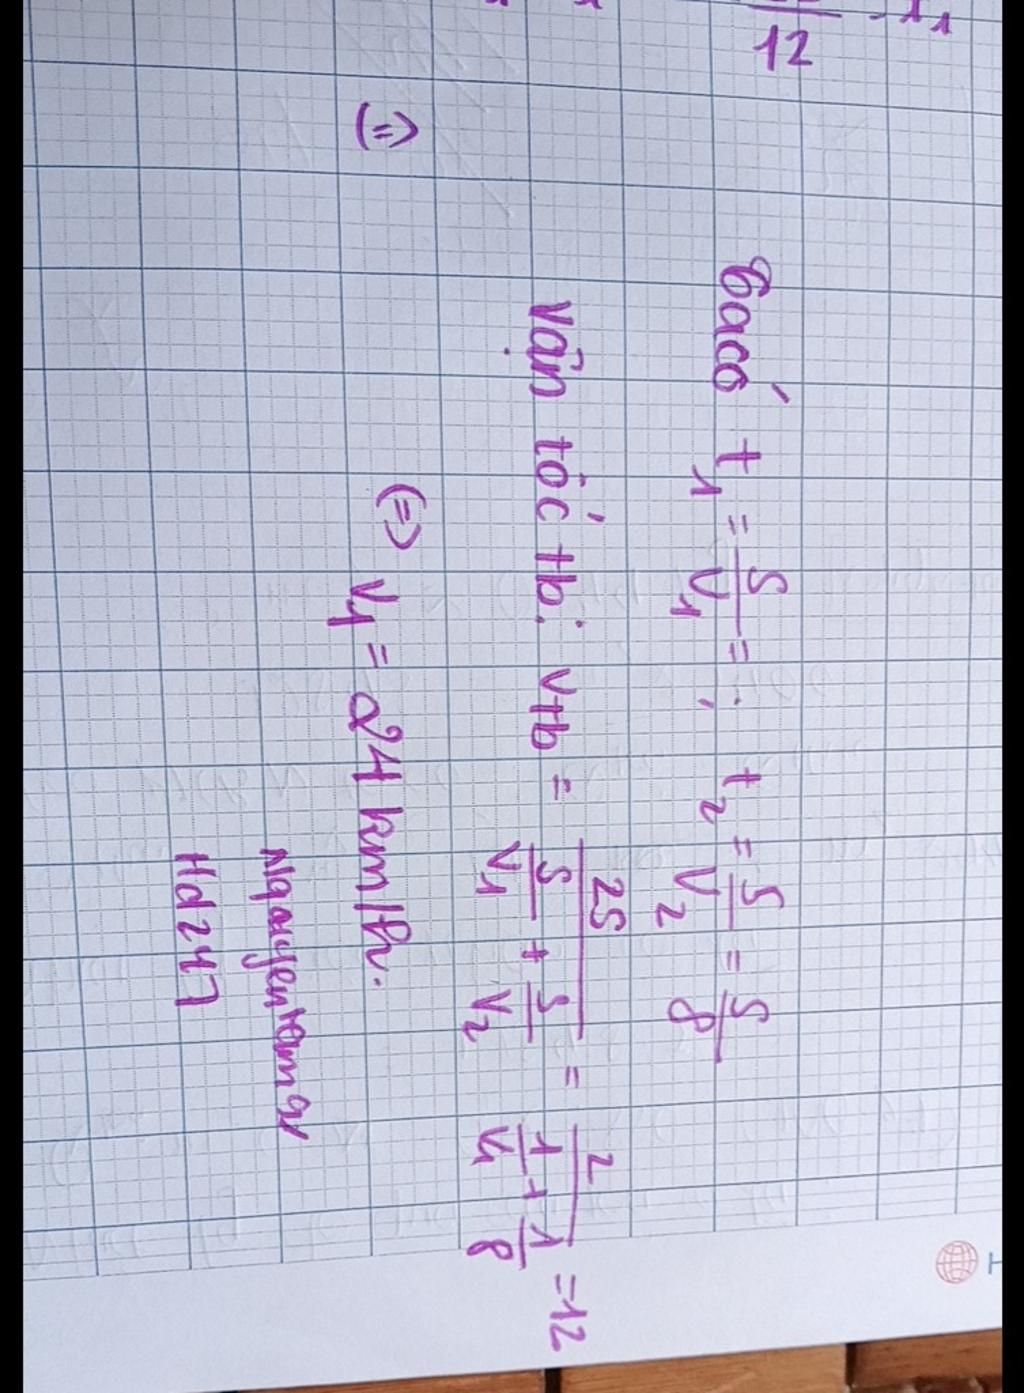 12
Ta có t₁ = S/V₁ = ; t₂ = S/V₂ = S/8
Vận tốc tb: vtb = 2S/(S/V₁ + S/V₂) = 2/(1/V₁ + 1/8) = 12
(=)
(=) V₁ = 24 km/h.
Hd247